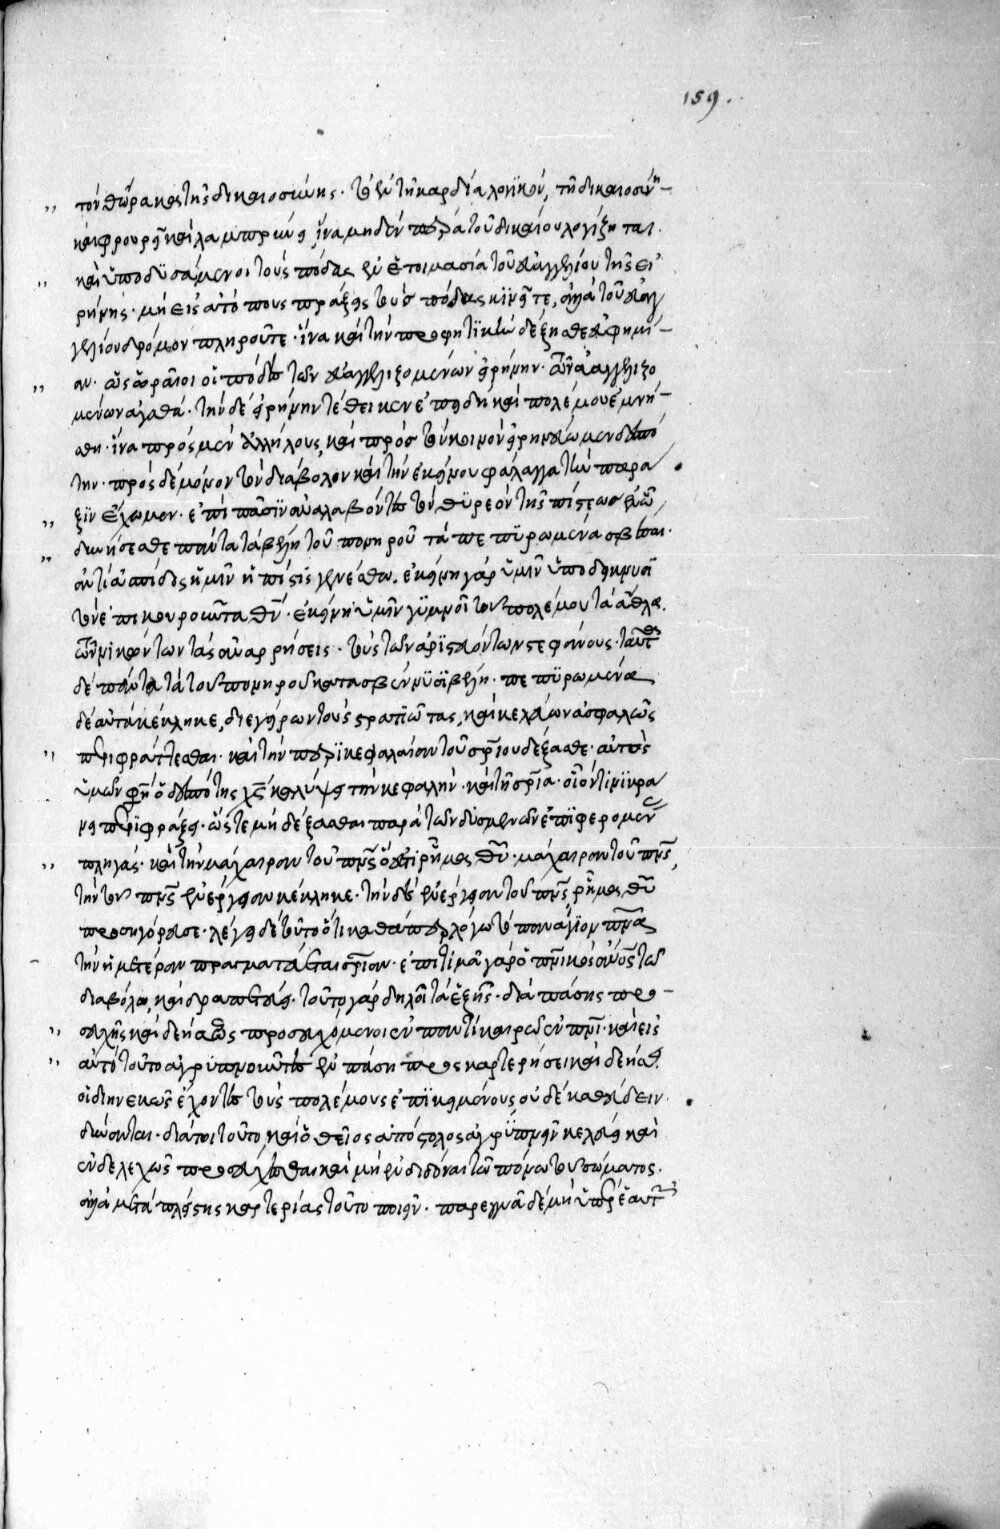 159.
τὸν θώρακα τῆς δικαιοσύνης. τὸ ἐν τῇ καρδίᾳ λογικὸν, τῇ δικαιοσύνῃ
καὶ φρουρεῖ καὶ λαμπρύνει, ἵνα μηδὲν παρὰ τοῦ δικαίου λογίζηται.
καὶ ὑποδυσάμενοι τοὺς πόδας ἐν ἑτοιμασία τοῦ εὐαγγελίου τῆς εἰ
ρήνης. μὴ εἰς ἀτόπους πράξεις τοὺς πόδας κινεῖτε, ἀλλὰ τοῦ εὐαγ
γελίου δρόμον πληροῦτε. ἵνα καὶ τὴν προφητικὴν δέξησθε εὐφημί
αν. ὡς ὡραῖοι οἱ πόδες τῶν εὐαγγελιζομένων εἰρήνην. τῶν εὐαγγελιζο
μένων ἀγαθά. τὴν δὲ εἰρήνην τέθεικεν ἐπειδὴ καὶ πολέμου ἐμνή
σθη. ἵνα πρὸς μὲν ἀλλήλους, καὶ πρὸς τὸ κοινὸν εἰρηνεύωμεν δεσπό
την. πρὸς δὲ μόνον τὸν διάβολον καὶ τὴν ἐκείνου φάλαγγα τὴν παρά
ξιν ἔχωμεν. ἐπὶ πᾶσιν ἀναλαβόντες τὸν θυρεὸν τῆς πίστεως ἐν ᾧ
δυνήσεσθε πάντα τὰ βέλη τοῦ πονηροῦ τὰ πεπυρωμένα σβέσαι.
ἀντὶ ἀσπίδος ἡμῖν ἡ πίστις γενέσθω. ἐκείνη γὰρ ὑμῖν ὑποδείκνυσι
τὸν ἐπικουροῦντα θν. ἐκείνη ὑμῖν γυμνοῖ τοῦ πολέμου τὰ ἆθλα.
τῶν νικώντων τὰς ἀναρρήσεις. τοὺς τῶν ἀριστευόντων στεφάνους. ταῦτα
δὲ πάντα τὰ τοῦ πονηροῦ κατασβέννυσι βέλη. πεπυρωμένα
δὲ αὐτὰ κέκληκε, διεγείρων τοὺς στρατιώτας, καὶ κελεύων ἀσφαλῶς
περιφράττεσθαι. καὶ τὴν περικεφαλαίαν τοῦ σριου δέξασθε. αὐτὸς
ὑμῶν φη ὁ δεσπότης χς καλύψει τὴν κεφαλήν. καὶ τῇ σρια. οἷόν τινι κρά
νει περιφράξει. ὥστε μὴ δέξασθαι παρὰ τῶν δυσμενῶν ἐπιφερομέν
πληγάς. καὶ τὴν μάχαιραν τοῦ πνς ὅ ἐστι ῥῆμα θυ. μάχαιραν τοῦ πνς,
τὴν τοῦ πνς ἐνέργειαν κέκληκε. τὴν δὲ ἐνέργειαν τοῦ πνς ῥῆμα θυ
προσηγόρευσε. λέγει δὲ τοῦτο ὅτι καθάπερ λόγῳ τὸ πανάγιον πνα
τὴν ἡμετέραν πραγματεύεται σριαν. ἐπιτιμᾶ γὰρ ὁ πνικὸς ἀνος τῷ
διαβόλῳ, καὶ δραπετεύει. τοῦτο γὰρ δηλοῖ τὰ ἑξῆς. διὰ πάσης προ
σευχῆς καὶ δεήσεως προσευχόμενοι ἐν παντὶ καιρῷ ἐν πνι. καὶ εἰς
αὐτὸ τοῦτο ἀγρυπνοῦντες ἐν πάση προσκαρτερήσει καὶ δεήσει.
οἱ διηνεκῶς ἔχοντες τοὺς πολέμους ἐπικειμένους, οὐδὲ καθεύδειν
δύνανται. διάτοι τοῦτο, καὶ ὁ θεῖος ἀπόστολος ἀγρυπνεῖν κελεύει καὶ
ἐνδελεχῶς προσεύχεσθαι καὶ μὴ ἐνδιδόναι τῶ πόνω τοῦ σώματος.
ἀλλὰ μετὰ πλείστης καρτερίας τοῦτο ποιεῖν. παρεγγυᾶ δὲ μὴ ὑπὲρ ἑαυτ